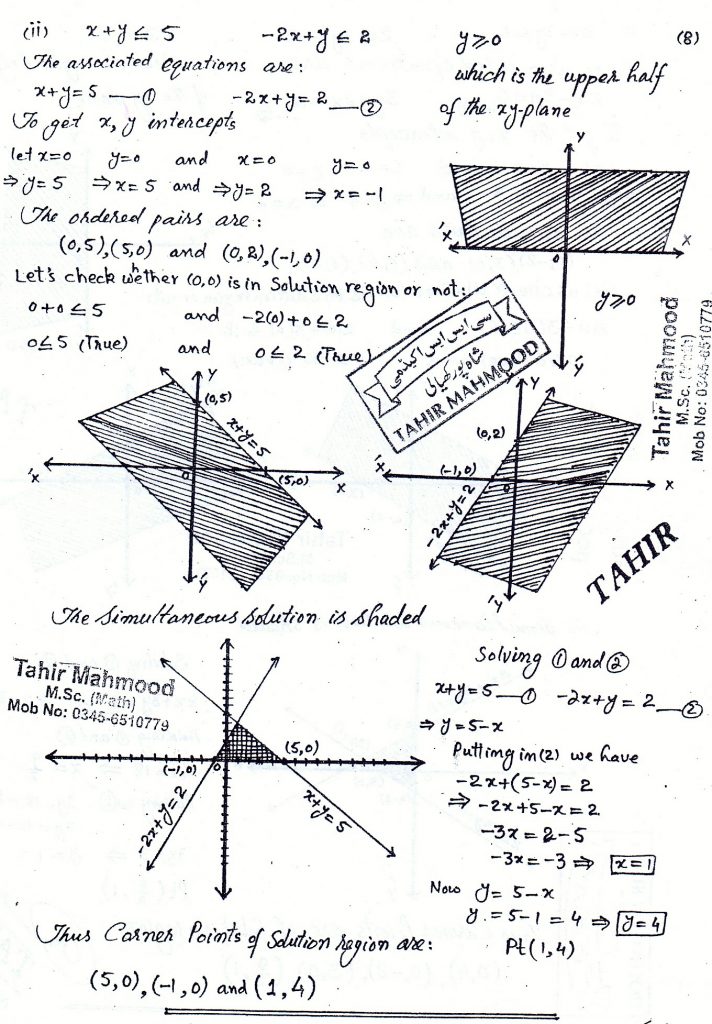 (ii) x+y ≤ 5 -2x+y ≤ 2 y≥0 (8)
The associated equations are:
x+y=5 —① -2x+y=2 —②
To get x, y intercepts
let x=0 y=0 and x=0 y=0
⇒y=5 ⇒x=5 and ⇒y=2 ⇒x=-1
The ordered pairs are:
(0,5),(5,0) and (0,2),(-1,0)
Let's check whether (0,0) is in Solution region or not:
0+0≤5 and -2(0)+0≤2
0≤5 (True) and 0≤2 (True)
which is the upper half
of the xy-plane
Y
'X
X
0
'Y
y≥0
سی ایس ایس اکیڈمی
شاہ پور کھیالی
TAHIR MAHMOOD
Tahir Mahmood
M.Sc. (Math)
Mob No: 0345-6510779
Y
(0,5)
x+y=5
'X
0
(5,0)
X
'Y
Y
(0,2)
'X
(-1,0)
0
X
-2x+y=2
'Y
TAHIR
The simultaneous solution is shaded
Tahir Mahmood
M.Sc. (Math)
Mob No: 0345-6510779
(5,0)
(-1,0)
0
-2x+y=2
x+y=5
Solving ① and ②
x+y=5 —① -2x+y=2 —②
⇒y=5-x
Putting in (2) we have
-2x+(5-x)=2
⇒ -2x+5-x=2
-3x=2-5
-3x=-3 ⇒ x=1
Now y=5-x
y.=5-1=4 ⇒ y=4
Pt(1,4)
Thus Corner Points of Solution region are:
(5,0),(-1,0) and (1,4)